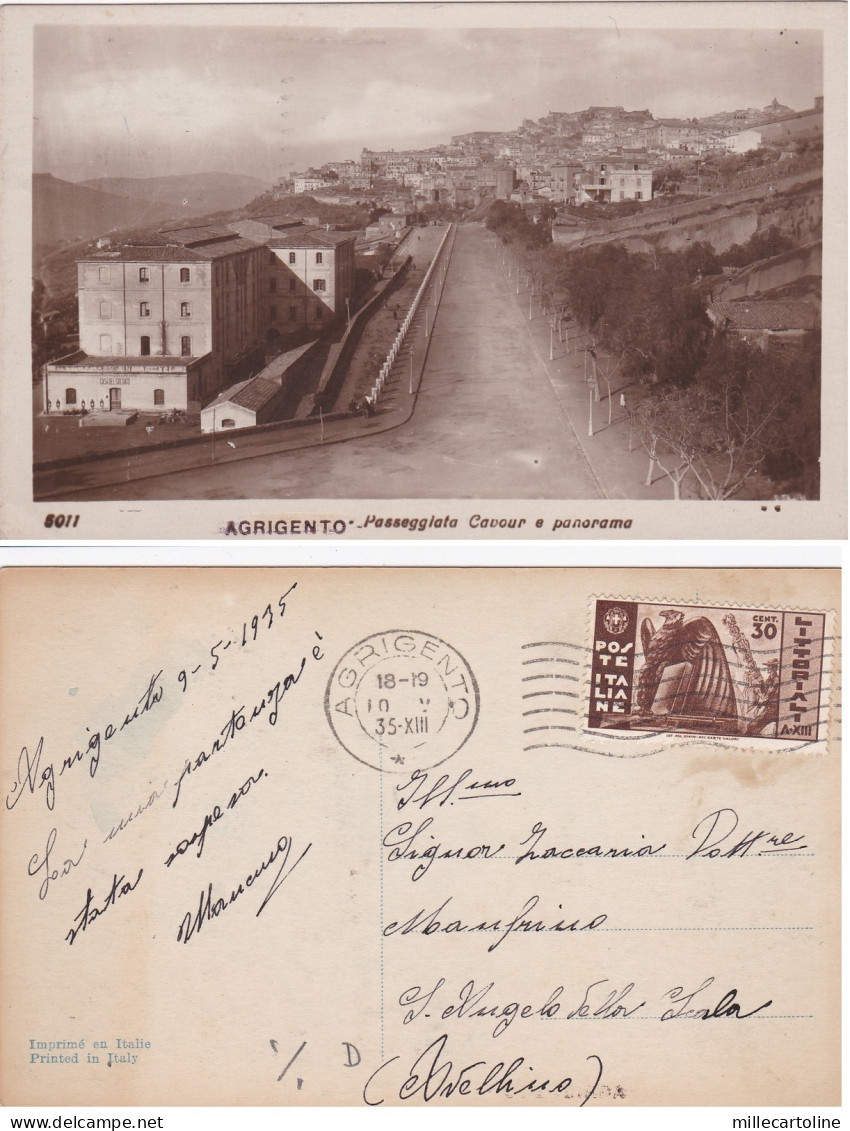 CASA DEL SOLDATO
5011
AGRIGENTO - Passeggiata Cavour e panorama
Agrigento 9-5-1935
La mia partenza è
stata sospesa.
Mancino
AGRIGENTO
18-19
10 V
35-XIII
POSTE ITALIANE
CENT. 30
LITTORIALI
A·XIII
Ill.mo
Signor Zaccaria Dott.re
Manfrino
S. Angelo della Scala
(Avellino)
Imprimé en Italie
Printed in Italy
D
millecartoline